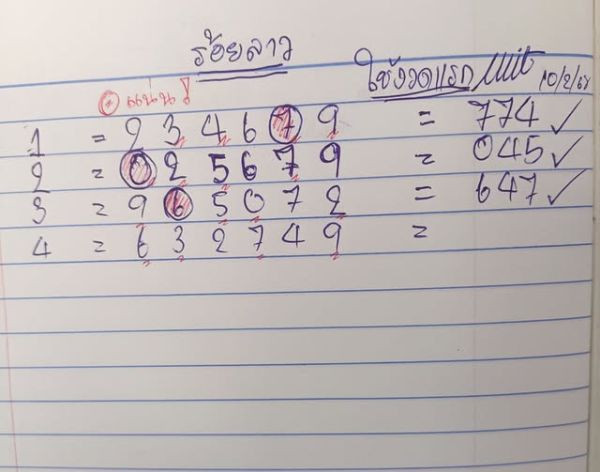 ร้อยลาว
ใช้งวดแรก
แน่น
1 = 2 3 4 6 7 9 = 774 ✓
2 = 0 2 5 6 7 9 = 045 ✓
3 = 9 6 5 0 7 2 = 647 ✓
4 = 6 3 2 7 4 9 =